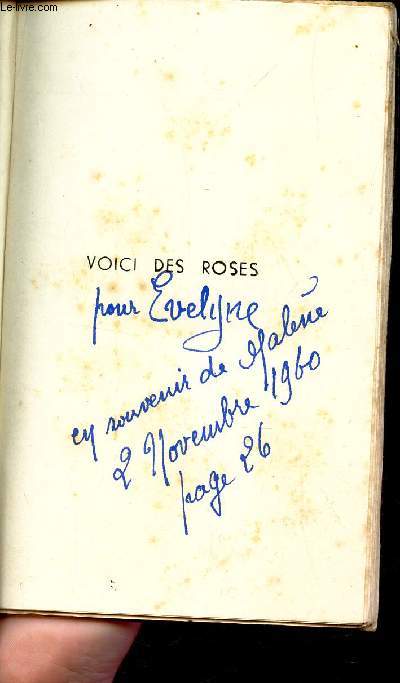 Le-livre.com
VOICI DES ROSES
pour Evelyne
en souvenir de Malène
2 Novembre 1960
page 26